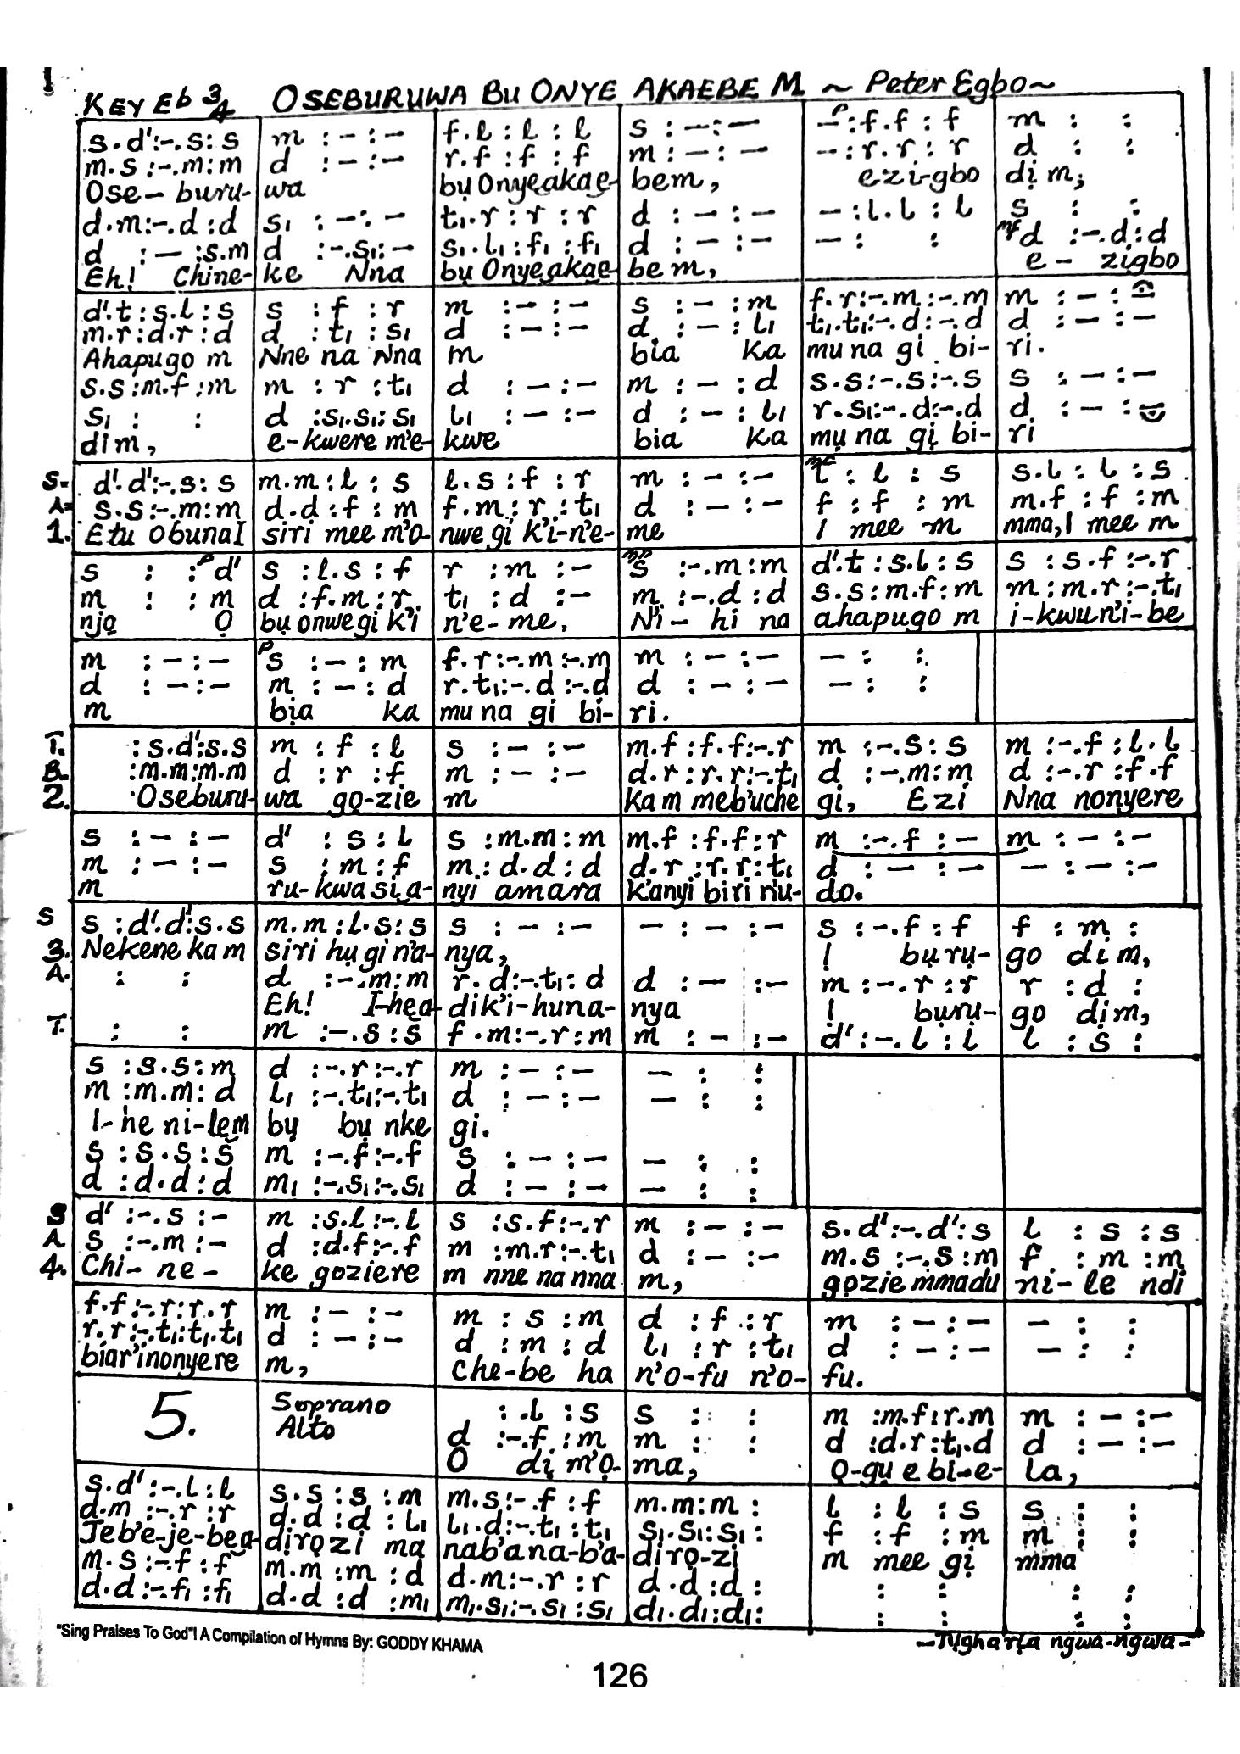 I
KEY Eb 3/4 OSEBURUWA BU ONYE AKAEBE M ~ Peter Egbo~
s.d':-.s:s | m :-:- | f.l:l:l | s :-:- | -:f.f:f | m : :
m.s:-.m:m | d :-:- | r.f:f:f | m:-:- | -:r.r:r | d : :
Ose-buru- | wa | bụ Onyeakae- | bem, | ezigbo | dị m;
d.m:-.d:d | s₁ :-:- | t₁.r:r:r | d :-:- | -:l.l:l | s : :
d :- :s.m | d :-.s₁:- | s₁.l₁:f₁:f₁ | d :-:- | -: : | mf d :-.d:d
Eh! Chine- | ke Nna | bụ Onyeakae- | bem, | | e- zigbo
d'.t:s.l:s | s :f :r | m :-:- | s :- :m | f.r:-.m:-.m | m :-:-
m.r:d.r:d | d :t₁ :s₁ | d :-:- | d :- :l₁ | t₁.t₁:-.d:-.d | d :-:-
Ahapugo m | Nne na Nna | m | bia ka | mu na gi bi- | ri.
s.s:m.f:m | m :r :t₁ | d :-:- | m :- :d | s.s:-.s:-.s | s :-:-
s₁ : : | d :s₁.s₁:s₁ | l₁ :-:- | d :- :l₁ | r.s₁:-.d:-.d | d :-:-
dim, | e-kwere m'e- | kwe | bia ka | mụ na gị bi- | ri
S. d'.d':-.s:s | m.m:l:s | l.s:f:r | m :-:- | : l : s | s.l:l:s
A. s.s:-.m:m | d.d:f:m | f.m:r:t₁ | d :-:- | f :f :m | m.f:f:m
1. Etu obunaI | siri mee m'o- | nwe gi k'i-n'e- | me | I mee m | mma, I mee m
s : :p d' | s :l.s:f | r :m :- | mp s :-.m:m | d'.t:s.l:s | s :s.f:-.r
m : :m | d :f.m:r | t₁ :d :- | m :-.d:d | s.s:m.f:m | m :m.r:-.t₁
njọ Ọ | bụ onwe gi k'i | n'e-me, | Ni-hi na | ahapugo m | i-kwu n'i-be
m :-:- | p s :- :m | f.r:-.m:-.m | m :-:- | - : :
d :-:- | m :- :d | r.t₁:-.d:-.d | d :-:- | - : :
m | bịa ka | mu na gi bi- | ri.
T. :s.d':s.s | m :f :l | s :-:- | m.f:f.f:-.r | m :-.s:s | m :-.f:l.l
B. :m.m:m.m | d :r :f | m :-:- | d.r:r.r:-.t₁ | d :-.m:m | d :-.r:f.f
2. Oseburu- | wa gọ-zie | m | Kam mebuche | gi, Ezi | Nna nonyere
s :-:- | d' :s:l | s :m.m:m | m.f:f.f:r | m :-.f:- | m :-:-
m :-:- | s :m:f | m :d.d:d | d.r:r.r:t₁ | d :-:- | -:-:-
m | ru-kwasị a- | nyi amara | k'anyi biri n'u- | do.
S s :d'.d':s.s | m.m:l.s:s | s :-:- | -:-:- | s :-.f:f | f :m :
3. Nekene kam | siri hụ gi n'a- | nya, | | I bụrụ- | go dim,
A. : : | d :-.m:m | r.d:-.t₁:d | d :-:- | m :-.r:r | r :d :
Eh! I-hea | dik'i-huna- | nya | I bụrụ- | go dim,
T. : : | m :-.s:s | f.m:-.r:m | m :-:- | d':-.l:l | l :s :
s :s.s:m | d :-.r:-.r | m :-:- | - : :
m :m.m:d | l₁ :-.t₁:-.t₁ | d :-:- | - : :
I-he ni-lem | by bụ nke | gi.
s :s.s:s | m :-.f:-.f | s :-:- | - : :
d :d.d:d | m₁ :-.s₁:-.s₁ | d :-:- | - : :
S d' :-.s :- | m :s.l:-.l | s :s.f:-.r | m :-:- | s.d':-.d':s | l :s :s
A s :-.m :- | d :d.f:-.f | m :m.r:-.t₁ | d :-:- | m.s:-.s:m | f :m :m
4. Chi-ne- | ke goziere | m nne na nna | m, | gọzie mmadu | ni-le ndi
f.f:-.r:r.r | m :-:- | m :s :m | d :f :r | m :-:- | - : :
r.r:-.t₁:t₁.t₁ | d :-:- | d :m :d | l₁ :r :t₁ | d :-:- | - : :
biar'inonyere | m, | Che-be ha | n'o-fu n'o- | fu.
5. | Soprano | : .l :s | s : : | m :m.f:r.m | m :-:-
Alto | d :-.f :m | m : : | d :d.r:t₁.d | d :-:-
O dị m'ọ- | ma, | Ọ-gụ e bi-e- | la,
s.d':-.l:l | s.s:s:m | m.s:-.f:f | m.m:m: | l :l :s | s : :
d.m:-.r:r | d.d:d:l₁ | l₁.d:-.t₁:t₁ | s₁.s₁:s₁: | f :f :m | m : :
Jeb'e-je-bea- | dirọzi ma | nab'ana-b'a- | dirọ-zi | m mee gị | mma
m.s:-.f:f | m.m:m:d | d.m:-.r:r | d.d:d: | : : | : :
d.d:-.f₁:f₁ | d.d:d:m₁ | m₁.s₁:-.s₁:s₁ | d₁.d₁:d₁: | : : | : :
"Sing Praises To God"! A Compilation of Hymns By: GODDY KHAMA
-Tụgharịa ngwa-ngwa-
126